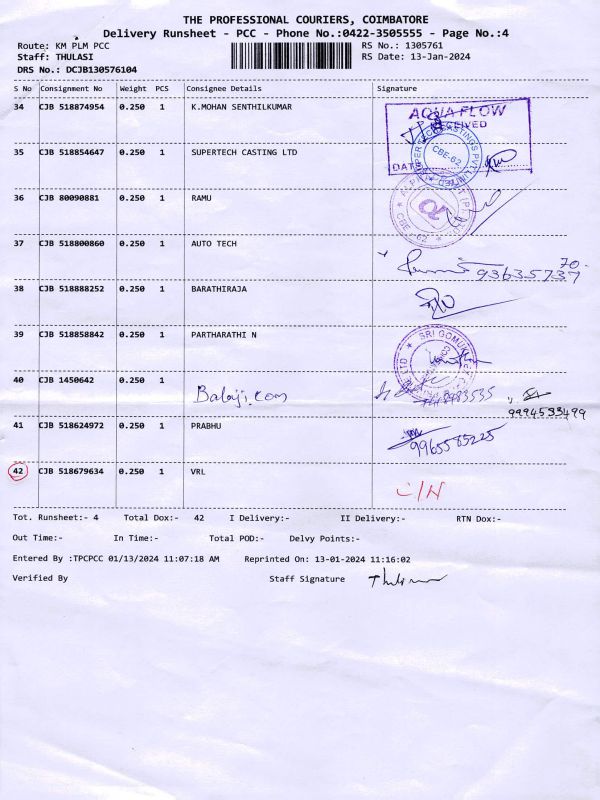 THE PROFESSIONAL COURIERS, COIMBATORE
Delivery Runsheet - PCC - Phone No.:0422-3505555 - Page No.:4
Route: KM PLM PCC RS No.: 1305761
Staff: THULASI RS Date: 13-Jan-2024
DRS No.: DCJB130576104
S No Consignment No Weight PCS Consignee Details Signature
34 CJB 518874954 0.250 1 K.MOHAN SENTHILKUMAR
AQUA FLOW
RECEIVED
DATE
35 CJB 518854647 0.250 1 SUPERTECH CASTING LTD
CBE-62
36 CJB 80090881 0.250 1 RAMU
CBE - 62
37 CJB 518800860 0.250 1 AUTO TECH
70-
93635737
38 CJB 518888252 0.250 1 BARATHIRAJA
39 CJB 518858842 0.250 1 PARTHARATHI N
SRI GOMUKI
40 CJB 1450642 0.250 1 Balaji.com
9994533499
41 CJB 518624972 0.250 1 PRABHU
9965585225
42 CJB 518679634 0.250 1 VRL
Tot. Runsheet:- 4 Total Dox:- 42 I Delivery:- II Delivery:- RTN Dox:-
Out Time:- In Time:- Total POD:- Delvy Points:-
Entered By :TPCPCC 01/13/2024 11:07:18 AM Reprinted On: 13-01-2024 11:16:02
Verified By Staff Signature